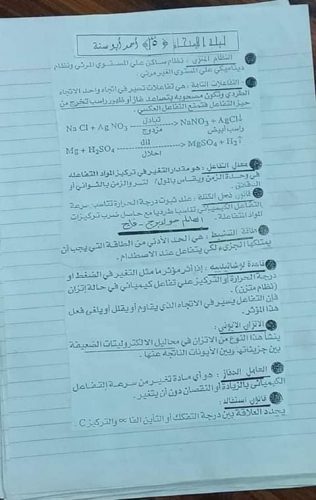 ليلة الامتحان أحمد أبو سنة
النظام المتزن : نظام ساكن على المستوى المرئي ونظام
ديناميكي على المستوى الغير مرئي
التفاعلات التامة : هي تفاعلات تسير في اتجاه واحد الاتجاه
الطردي وتكون مصحوبه بتصاعد غاز أو ظهور راسب لتخرج من
حيز التفاعل فتمنع التفاعل العكسي
Na Cl + Ag NO3 تبادل مزدوج -----> NaNO3 + AgCl↓
راسب أبيض
Mg + H2SO4 dil احلال -----> MgSO4 + H2↑
معدل التفاعل : هو مقدار التغير في تركيز المواد المتفاعله
في وحدة الزمن ويقاس بـ (مول / لتر) والزمن بالثواني أو
الدقائق .
قانون فعل الكتلة : عند ثبوت درجة الحرارة تتناسب سرعة
التفاعل الكيميائي تناسبا طرديا مع حاصل ضرب تركيزات
المواد المتفاعلة .
طاقة التنشيط : هي الحد الأدنى من الطاقة التي يجب أن
يمتلكها الجزيء لكي يتفاعل عند الاصطدام .
قاعدة لوشاتيلييه : إذا أثر مؤثر ما مثل التغير في الضغط او
درجة الحرارة أو التركيز علي تفاعل كيميائي في حالة إتزان
(نظام متزن) .
فإن التفاعل يسير في الاتجاه الذي يقاوم أو يقلل أو يلغى فعل
هذا المؤثر .
الاتزان الايوني :
ينشأ هذا النوع من الاتزان في محاليل الالكتروليتات الضعيفة
بين جزيئاتها وبين الأيونات الناتجة عنها .
العامل الحفاز : هو أي مادة تغير من سرعة التفاعل
الكيميائي بالزيادة أو النقصان دون أن يتغير .
قانون استفالد :
يحدد العلاقة بين درجة التفكك أو التأين الفا ∞ والتركيز C .